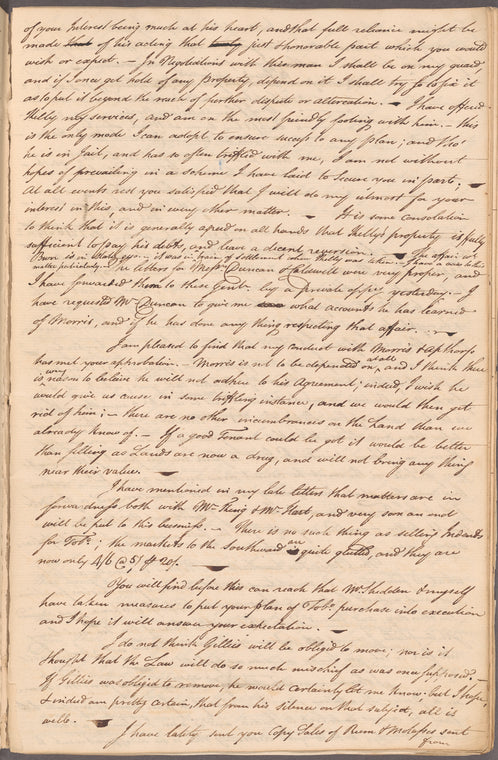 of your Interest being much at his heart, and that full reliance might be
made of his acting that just & honorable part which you would
wish or expect. — In Negotiations with this man I shall be on my guard,
and if I once get hold of any Property, depend on it I shall try so to fix it
as to put it beyond the reach of further dispute or altercation. — I have offered
Kelly my services, and am on the most friendly footing with him. — this
is the only mode I can adopt to ensure success to any plan; and tho'
he is in Jail, and has so often trifled with me, I am not without
hopes of prevailing in a scheme I have laid to secure you in part; —
At all events rest you satisfied that I will do my utmost for your
interest in this, and in every other matter. — It is some consolation
to think that it is generally agreed on all hands that Kelly's property is fully
sufficient to pay his debts, and leave a decent reversion. — The affair with
Burn is in Statu quo — it was in train of settlement when Kelly was taken
matter particularly. — The letters for Messrs. Duncan & Caldwell were very proper, and
I have forwarded them to these Gentn. by a private oppy. yesterday. — I
have requested Mr. Duncan to give me what accounts he has learned
of Morris, and if he has done any thing respecting that affair. —
I am pleased to find that my conduct with Morris & Apthorp
has met your approbation. — Morris is not to be depended on at all, and I think there
is room to believe he will not adhere to his Agreement; indeed, I wish he
would give us cause in some trifling instance, and we would then get
rid of him; — there are no other incumbrances on the Land than we
already know of. — If a good Tenant could be got it would be better
than selling as Lands are now a drug, and will not bring any thing
near their value. —
I have mentioned in my late letters that matters are in
forwardness both with Mr. & Mr. Hart, and very soon an end
will be put to this business. — There is no such thing as selling
for Tobo.; the markets to the Southward are quite glutted, and they are
now only 4/6 @ 5/ 20/. —
You will find before this can reach that Mr. Shedden & myself
have taken measures to put your plan of Tobo. purchase into execution
and I hope it will answer your expectation. —
I do not think Gillies will be obliged to move; nor is it
thought that the Law will do so much mischief as was once supposed. —
If Gillies was obliged to remove, he would certainly let me know; but I hope,
& indeed am pretty certain, that from his silence on that subject, all is
well. —
I have lately sent you Copy Sales of Rum & Molasses sent
from